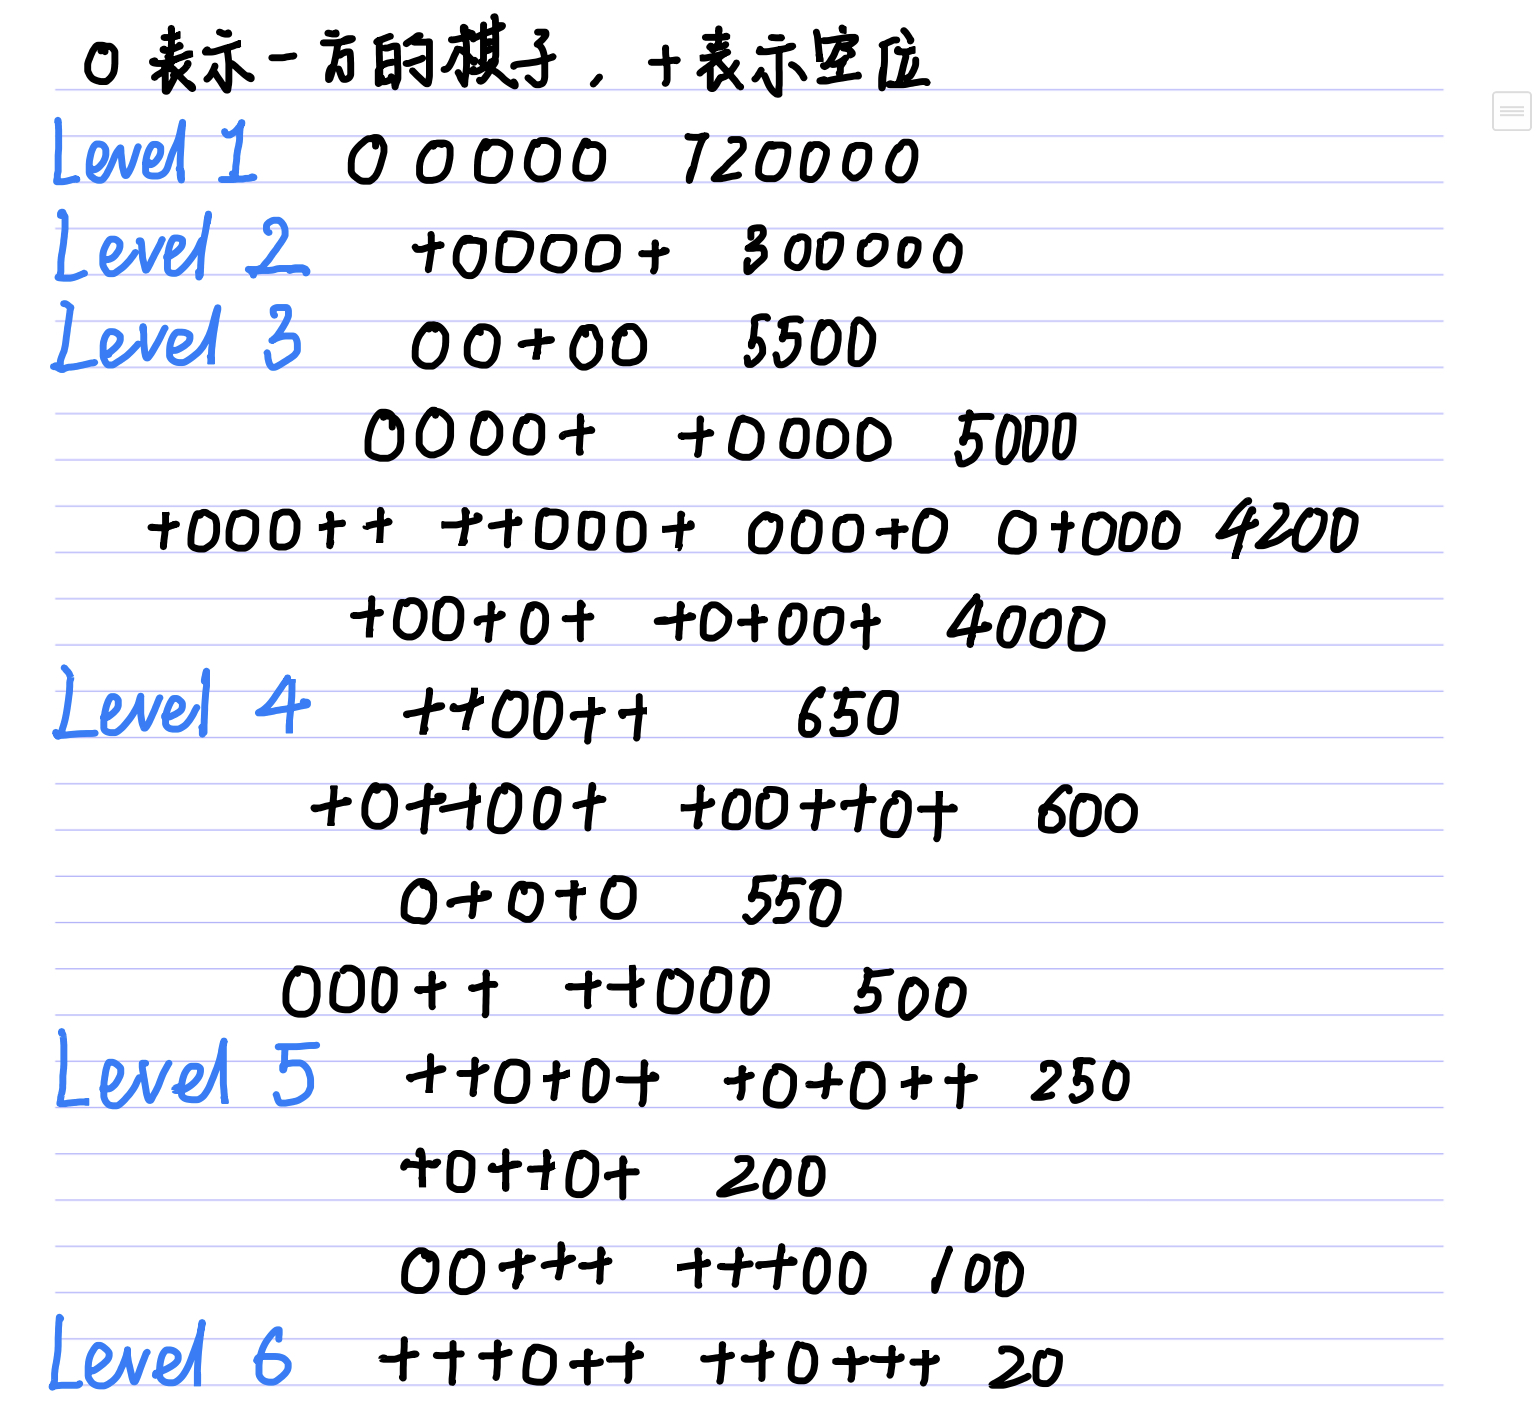 0 表示一方的棋子，+表示空位
Level 1 00000 720000
Level 2 +0000+ 300000
Level 3 00+00 5500
0000+ +0000 5000
+000++ ++000+ 000+0 0+000 4200
+00+0+ +0+00+ 4000
Level 4 ++00++ 650
+0++00+ +00++0+ 600
0+0+0 550
000++ ++000 500
Level 5 ++0+0+ +0+0++ 250
+0++0+ 200
00+++ +++00 100
Level 6 +++0++ ++0+++ 20